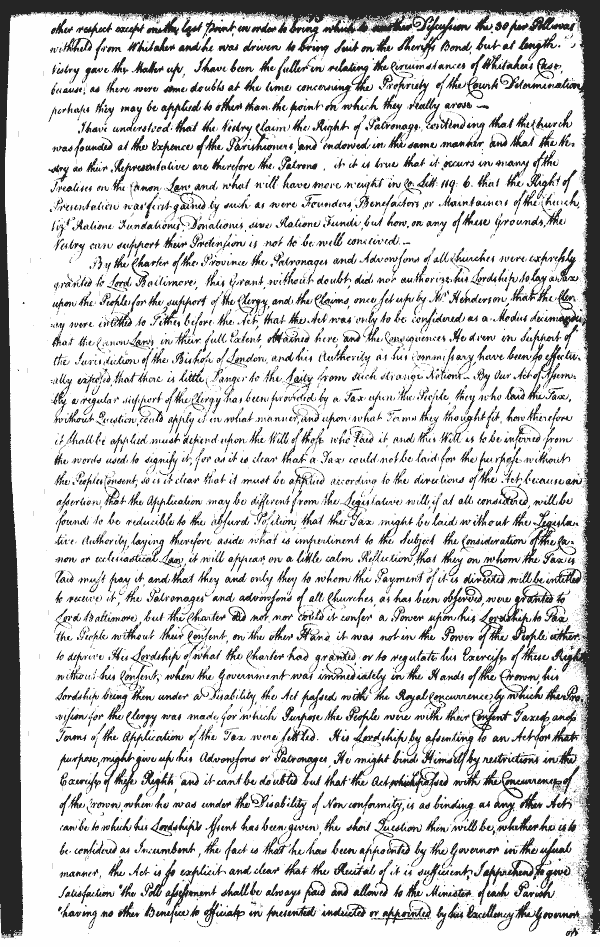 other respect except on the last point, in order to bring which to another Discussion the 30 per Poll was
withheld from Whitaker and he was driven to bring Suit on the Sheriffs Bond, but at length
Vestry gave the Matter up, I have been the fuller in relating the Circumstances of Whitakers Case
because, as there were some doubts at the time concerning the Propriety of the Courts Determination
perhaps they may be applied to other than the point on which they really arose —
I have understood that the Vestry Claim the Right of Patronage, contending that the Church
was founded at the Expence of the Parishioners, and endowed in the same manner, and that the Ve-
stry as their Representative are therefore the Patrons, it is true that it occurs in many of the
Treatises on the Canon Law and what will have more weight in Co. Litt. 119. 6. that the Right of
Presentation was first gained by such as were Founders Benefactors or Maintainers of the Church,
Vizt Ratione Fundationis, Donationis, sive Ratione Fundi, but how, on any of these Grounds, the
Vestry can support their Pretension is not to be well conceived. —
By the Charter of the Province the Patronages and Advowsons of all Churches were expressly
granted to Lord Baltimore, this Grant, without doubt, did not authorize his Lordship to lay a Tax
upon the People for the support of the Clergy, and the Claims, once set up by Mr Henderson, that the Cler-
gy were intitled to Tithes before the Act, that the Act was only to be considered as a Modus decimandi
that the Canon Laws in their full Extent obtained here and the Consequences He drew in Support of
the Jurisdiction of the Bishop of London, and his Authority as his Commissary have been so effectu-
ally exposed that there is little Danger to the Laity from such strange Notions — By Our Act of Assem-
bly a regular support of the Clergy has been provided by a Tax upon the People, they who laid the Tax,
without Question, could apply it in what manner, and upon what Terms they thought fit, how therefore
it shall be applied must depend upon the Will of those who laid it, and this Will is to be inferred from
the words used to signify it, for as it is clear that a Tax could not be laid for the purpose without
the Peoples Consent, so is it clear that it must be applied according to the directions of the Act, because an
assertion that the Application may be different from the Legislative will, if at all considered, will be
found to be reducible to the absurd Position that the Tax might be laid without the Legisla-
tive Authority, laying therefore aside what is impertinent to the Subject the Consideration of the Ca-
non or ecclesiastical Law, it will appear on a little calm Reflection, that they on whom the Tax is
laid must pay it and that they and only they to whom the Payment of it is directed will be intitled
to receive it, the Patronages and advowsons of all Churches as has been observed, were granted to
Lord Baltimore, but the Charter did not nor could it confer a Power upon his Lordship to Tax
the People without their Consent, on the other Hand it was not in the Power of the People either
to deprive His Lordship of what the Charter had granted or to regulate his Exercise of these Rights
without his Consent, when the Government was immediately in the Hands of the Crown, his
Lordship being then under a Disability the Act passed with the Royal Concurrence, by which the Pro-
vision for the Clergy was made for which Purpose the People were with their Consent Taxed, and
Terms of the Application of the Tax were settled. His Lordship by assenting to an Act for that
purpose, might give up his Advowsons or Patronages, He might bind Himself by restrictions in the
Exercise of these Rights, and it cant be doubted but that the Act which passed with the Concurrence of
of the Crown, when he was under the Disability of Non conformity, is as binding as any other Act
can be to which his Lordship's Assent has been given, the short Question then will be, whether he is to
be considered as Incumbent, the fact is that he has been appointed by the Governor in the usual
manner, the Act is so explicit and clear that the Recital of it is sufficient, I apprehend, to give
Satisfaction "the Poll assessment shall be always paid and allowed to the Minister of each Parish
"having no other Benefice to officiate in presented inducted or appointed by his Excellency the Governor